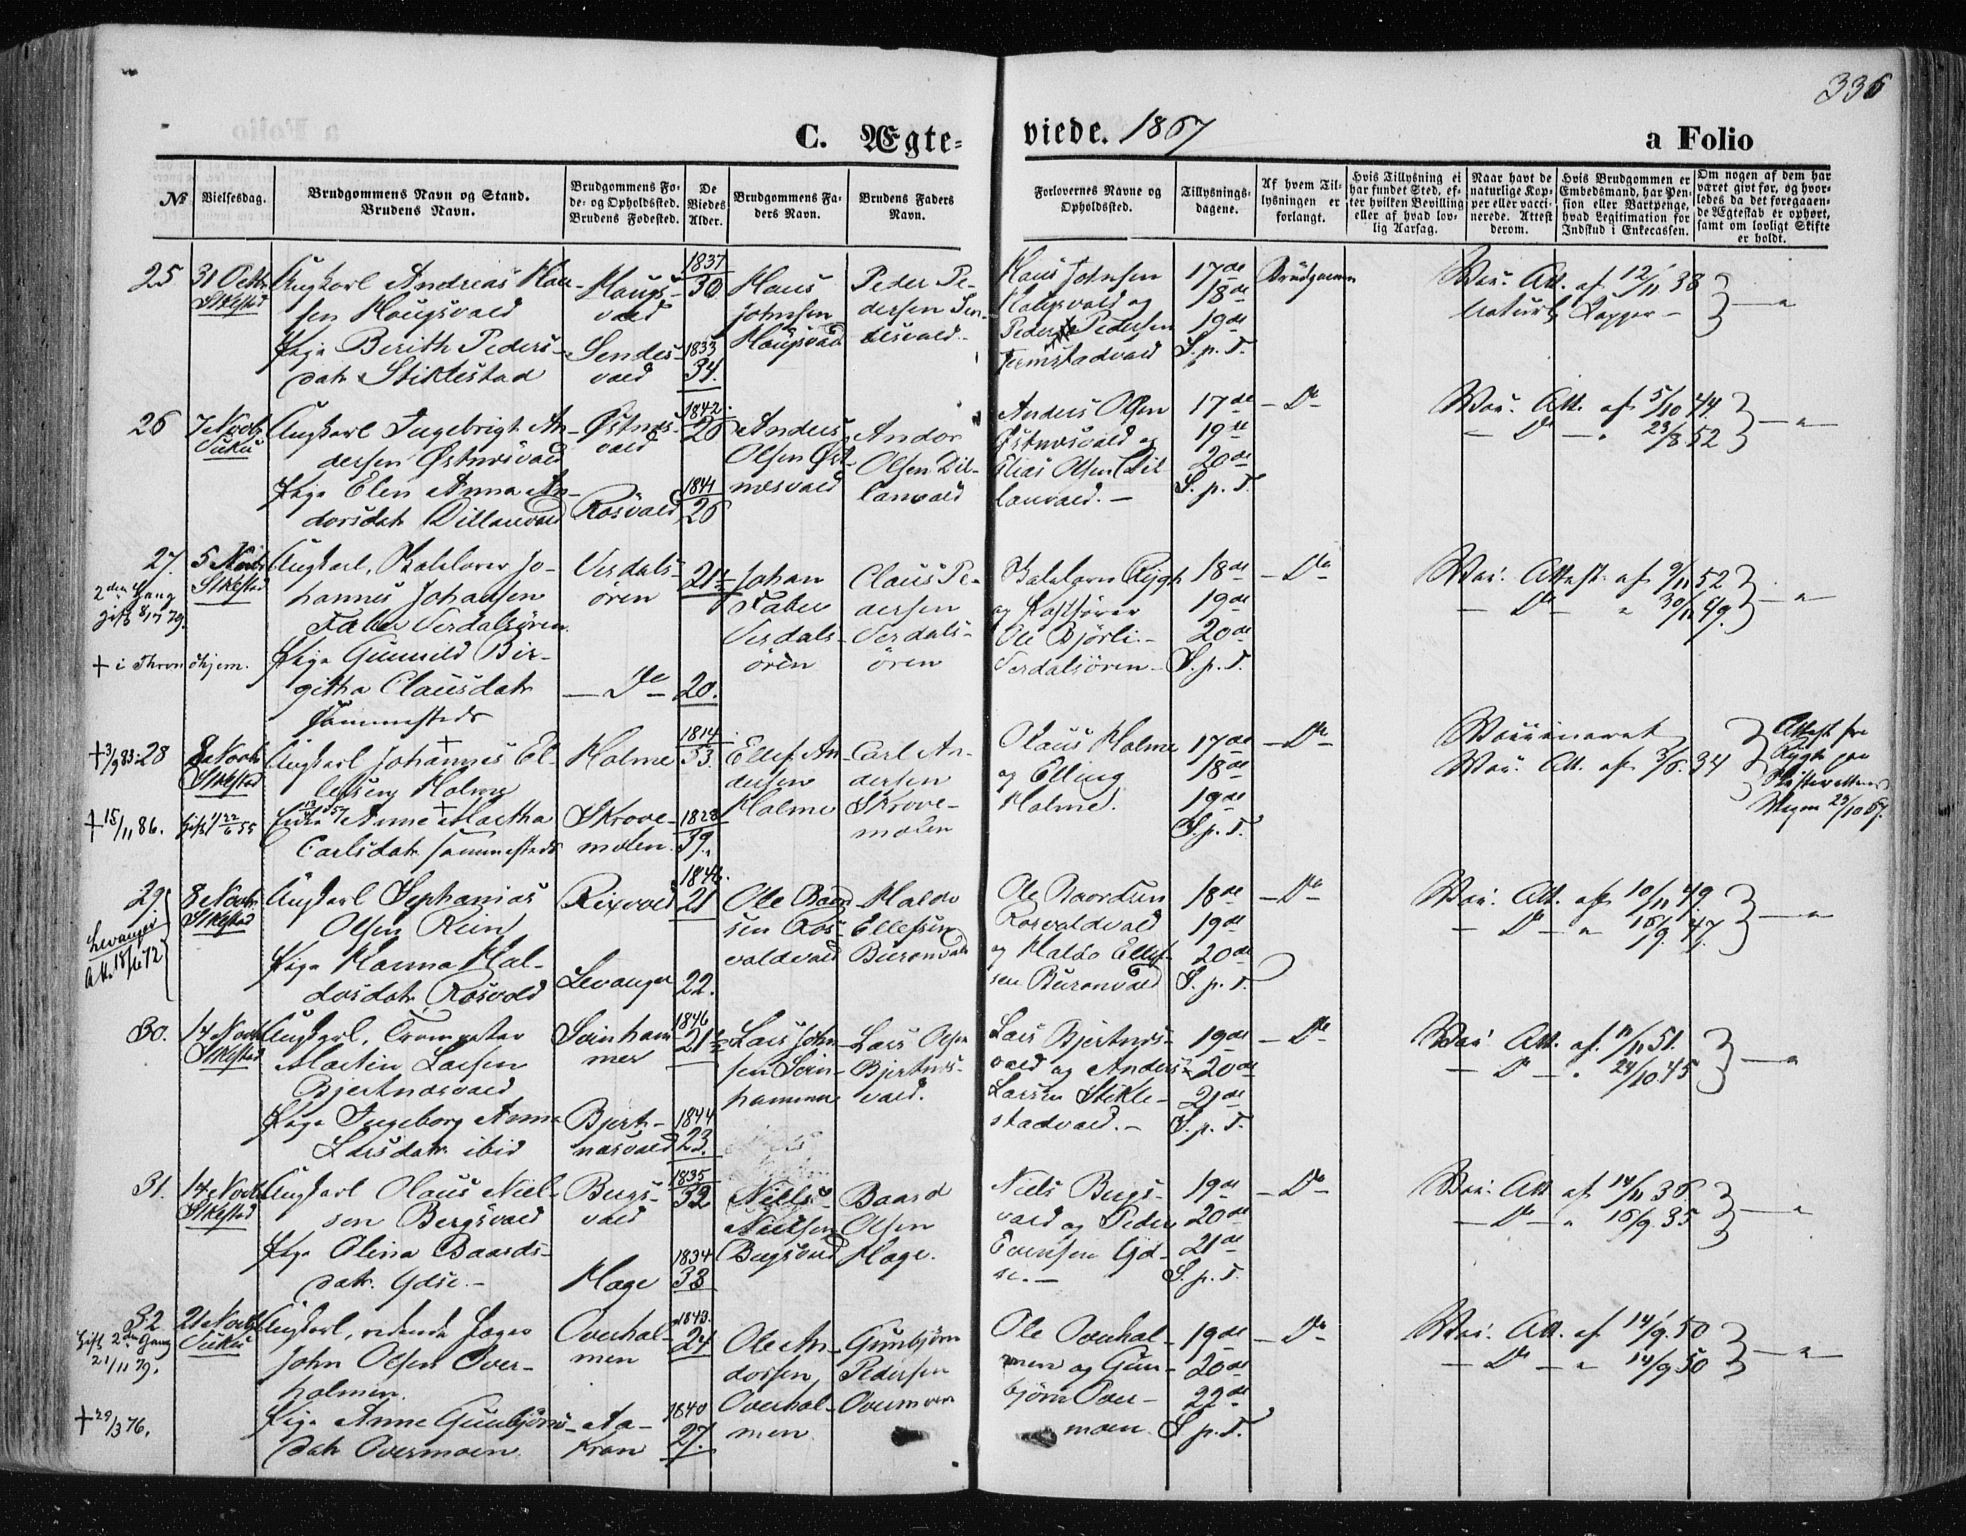 336
C. Ægte-
viede. 1867
a Folio
№
Vielsesdag.
Brudgommens Navn og Stand.
Brudens Navn.
Brudgommens Fø-
de- og Opholdssted.
Brudens Fødested.
De
Viedes
Alder.
Brudgommens Fa-
ders Navn.
Brudens Faders
Navn.
Forlovernes Navne og
Opholdssted.
Tillysnings-
dagene.
Af hvem Til-
lysningen er
forlangt.
Hvis Tillysning ei
har fundet Sted, ef-
ter hvilken Bevilling
eller af hvad lov-
lig Aarsag.
Naar havt de
naturlige Kop-
per eller vacci-
nerede. Attest
derom.
Hvis Brudgommen er
Embedsmand, har Pen-
sion eller Vartpenge,
hvad Legitimation for
Indskud i Enkecassen.
Om nogen af dem har
været givt før, og hvor-
ledes da det foregaaen-
de Ægteskab er ophørt,
samt om lovligt Skifte
er holdt.
25
31 Octbr
Stklestad
Ungkarl Andreas Han-
sen Haugsvald
Pige Berith Peders-
datr Stiklestad
Haugs-
vald
Sendes-
vald
1837
30
1833
34.
Hans
Johnsen
Haugsvald
Peder Pe-
dersen Sen-
desvald.
Hans Johnsen
Haugsvald og
Peder Pedersen
17de
18de
19de
S. p. T.
Brudgommen
Vac. Att. af 12/11 38
naturl. Kopper —
26
7 Novbr
Ungkarl Ingebrigt An-
dersen Østnesvald
Pige Elen Anna An-
dorsdatr Dillanvald
Østnes-
vald
Rosvald
1842.
1841
26
Anders
Olsen Øst-
nesvald
Andor
Olsen Dil-
lanvald
Anders Olsen
Østnesvald og
Elias Olsen Dil-
lanvald. —
17de
19de
20de
S. p. T.
— Do
Vac. Att. af 5/10 44.
— Do — " 23/8 52
27.
2den Gang
gift 8/17 79.
+ i Thron dhjem.
5 Novbr
Stklestad
Ungkarl, Jo-
hannes Johansen
Faber Verdalsøren
Pige Gunnild Bir-
githa Clausdatr
sammesteds
Verdals-
øren
— Do —
21
20.
Johan
Faber
Verdals-
øren
Claus Pe-
dersen
Verdals-
øren
og
Ole Bjørli —
Verdalsøren —
18de
19de
20de
S. p. T.
— Do
Vac. Attest. af 9/11 52
— Do " 30/11 49.
+ 3/9 83. 28
+ 15/11 86.
8 Novbr
Stklestad
Ungkarl Johannes El-
lefsen Holme
Anne Martha
Carlsdatr sammesteds
Holme
Skrove-
moien.
1814
53.
1828
39.
Ellef An-
dersen
Holme
Carl An-
dersen
Skrove-
moien
Olaus Holme
og Elling
Holme.
17de
18de
19de
S. p. T.
— Do
Vaccineret
Vac. Att. af 3/6. 34
Attest fra
Skifteretten
23/10 67.
29
Levanger
8 Novbr
Stklestad
Ungkarl Sephanias
Olsen Rein
Pige Hanna Hal-
dosdatr Rosvold
Levanger
1846.
21
22.
Ole Baard
sen Ros-
valdvald
Haldo
Ellefsen
Buranvald
Ole Baardsen
Rosvaldvald
og Haldo Ellef-
sen Buranvald
18de
19de
20de
S. p. T.
— Do
Vac. Att. af 10/11 49.
— Do — " 16/9. 47.
30.
14 Novbr
Stklestad
Ungkarl, Trompeter
Martin Larsen
Bjertnæsvald
Pige Ingeborg Anna
Larsdatr ibid
Svinham
mer
Bjert-
næsvald
1846
21
1844
23.
Lars John
sen Svin-
hammer
Lars Olsen
Bjertnæs-
vald.
Lars Bjertnæs-
vald og Anders
Larsen Stikle-
stadvald. —
19de
20de
21de
S. p. T.
— Do
Vac. Att. af 11/11 51.
— D — " 24/10 45
31.
14 Novbr
Stklestad
Ungkarl Olaus Niel-
sen Bergsvald
Pige Olina Baards-
datr. Ydse. —
Bergs-
vald
Hage
1835
32
1834
33
Niels
Nielsen
Bergsvald
Baard
Olsen
Hage.
Niels Bergs-
vald og Peder
Evensen Yd-
se. —
19de
20de
21de
S. p. T.
— Do
Vac. Att. af 14/11 36.
— Do — " 16/9 35
32
Gift 2den Gang
21/11 79.
+ 29/3 76.
21 Novbr
Ungkarl, ridende Jæger
John Olsen Over-
holmen.
Pige Anne Gunbjørns-
datr Overmoen
Overhol-
men
Aa-
kran
1843.
24
1840
27.
Ole An-
dorsen
Overhol-
men
Gunbjørn
Pedersen
Overmoen
Ole Overhol-
men og Gun-
bjørn Over-
moen.
19de
20de
22de
S. p. T.
— Do
Vac. Att. af 14/9. 50
— Do — " 14/9 50